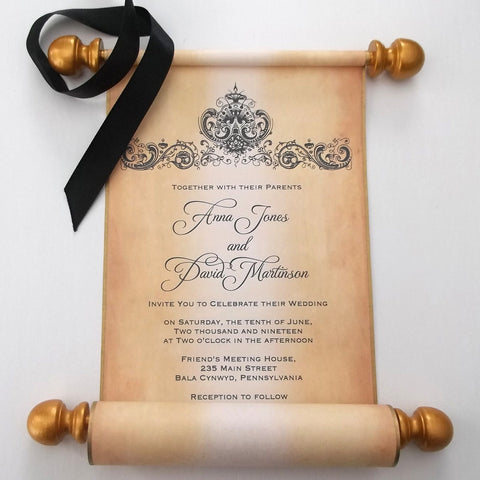 Together with their Parents
Anna Jones
and
David Martinson
Invite You to Celebrate their Wedding
on Saturday, the tenth of June,
Two thousand and nineteen
at Two o'clock in the afternoon
Friend's Meeting House,
235 Main Street
Bala Cynwyd, Pennsylvania
Reception to follow